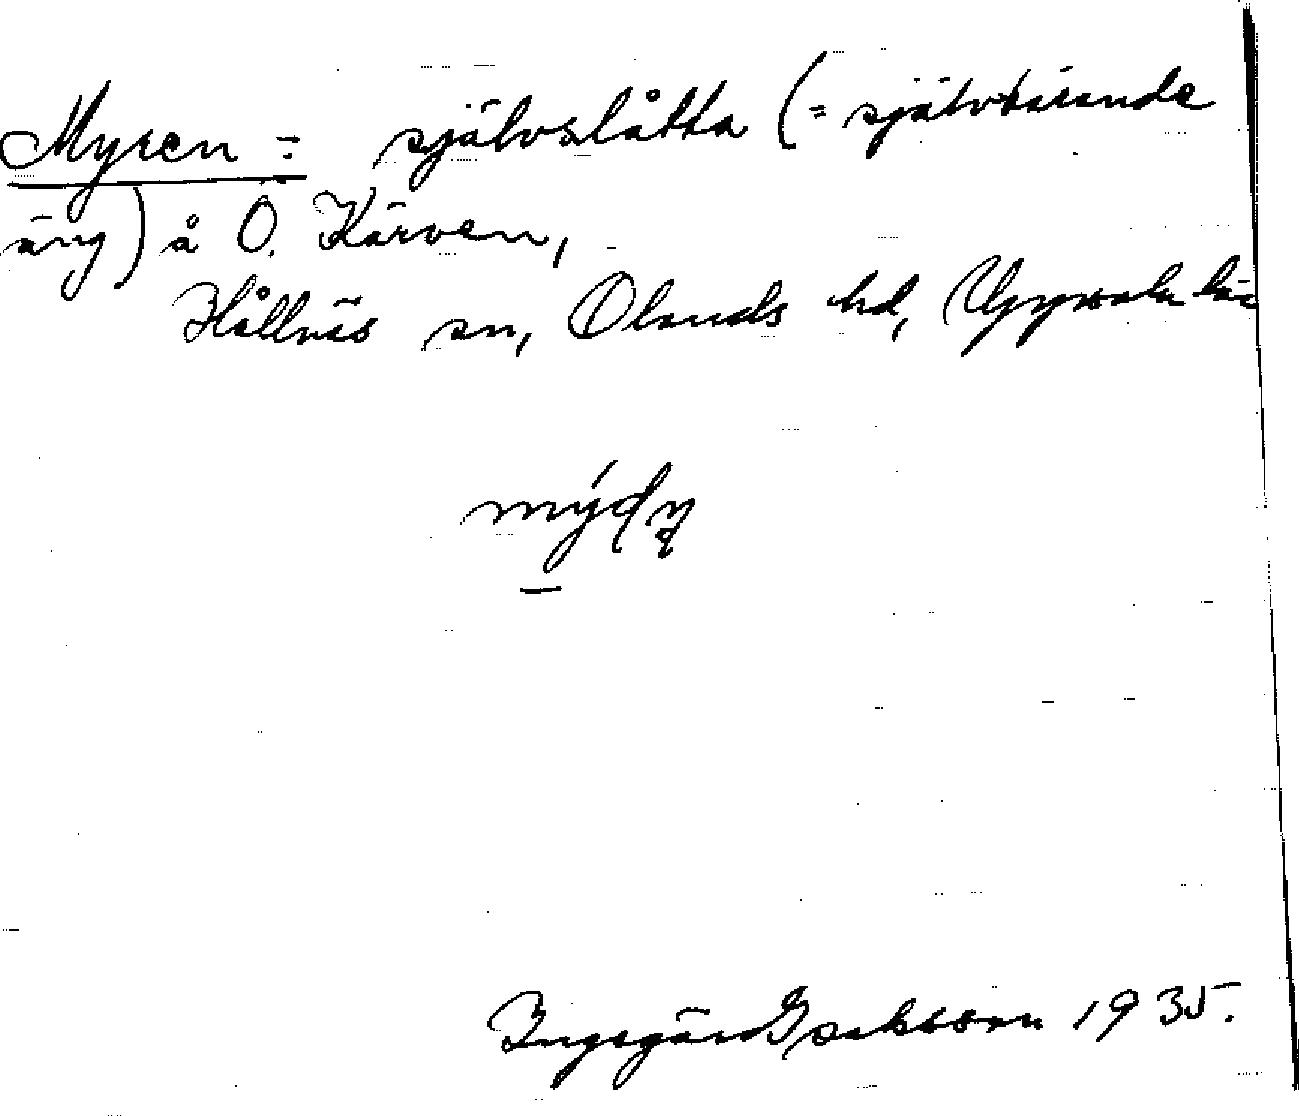 Myren = självslåtta (= självbärande
äng) å Ö. Kärven,
Hållnäs sn, Olands hd, Uppsala län
Ingegärd Isaksson 1935.